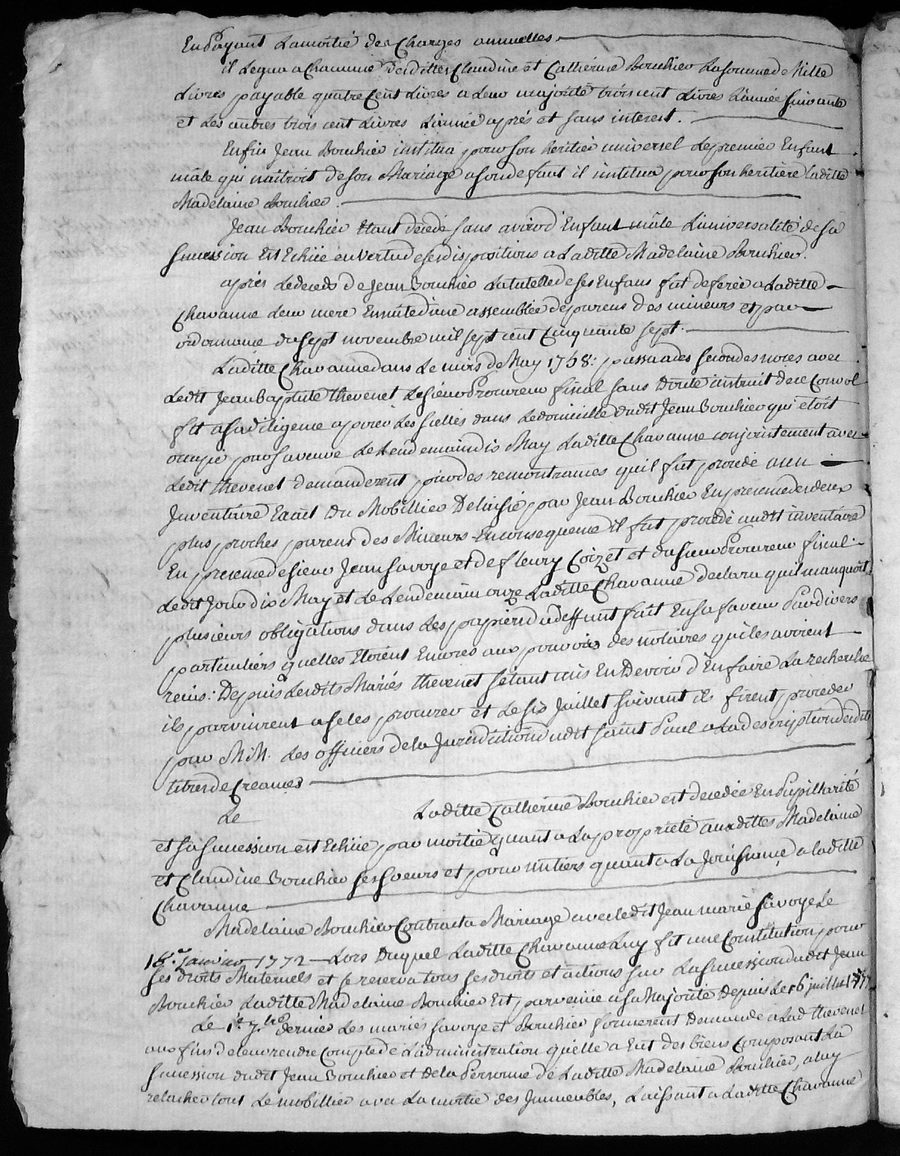 En Payant Lamoitié des Charges annuelles
il Legua a Chacunne desdittes Claudine et Cathérine Bouchier La somme de Mille
Livres payable quatre Cent Livres a Leur majorité trois cent Livres L'année suivante
et Les autres trois cent Livres L'année aprés et sans interest.
Enfin Jean Bouchier institua pour son heritier universel Le premier Enfant
mâle qui naitroit de son Mariage a son defaut il institua pour son heritiére Laditte
Madelaine Bouchier.
Jean Bouchier Etant décédé sans avoir d'Enfant mâle L'universalité de sa
succession Est Echüe en vertu de ses dispositions a Laditte Madelaine Bouchier.
après Le deceds de Jean Bouchier La tutelle de ses Enfans fut deferée a Laditte
Chavanne Leur mere Ensuite d'une assemblée de parens des mineurs et par
ordonnance du sept novembre mil sept cent Cinquante sept.
Laditte Chavanne dans Le mois de May 1758: passa a des secondes noces avec
Ledit Jean Baptiste thevenet Le sieur Procureur fiscal sans Doute instruit de ce Convol
fit a sa diligence apposer Les scellés dans Le domicille dudit Jean Bouchier qui etoit
occupé par sa veuve Le Lendemain dix May Laditte Chavanne conjointement avec
Ledit thevenet demanderent par des remontrances qu'il fut procédé a un
Inventaire Exact Du Mobillier Delaissé par Jean Bouchier En presence des deux
plus proches parens des Mineurs En consequence il fut procédé audit inventaire
En presence de sieur Jean Savoye et de fleury Coizet et du sieur Procureur fiscal
Ledit Jour dix May et Le Lendemain onze Laditte Chavanne declara qu'il manquoit
plusieurs obligations dans Les papiers du deffunt fait En sa faveur Par divers
particuliers quelles Etoient Encores aux pouvoirs des notaires qui les avoient
recus: Depuis Lesdits Mariés thevenet s'étant mis En Devoir d'En faire La recherche
ils parvinrent a se les procurer et Le six Juillet suivant ils firent proceder
par M.M. Les officiers de la Jurisdiction dudit saint Paul a La description desdits
titres de Creances
Le Laditte Catherine Bouchier est decedée En Pupillarité
et sa succession est Echüe par moitié quant a La propriété auxdittes Madelaine
et Claudine Bouchier ses soeurs et pour un tiers quant a La Jouissance a laditte
Chavanne
Madelaine Bouchier Contracta Mariage avec ledit Jean marie Savoye Le
16.e Janvier 1772 Lors Duquel Laditte Chavanne Luy fit une Constitution pour
ses droits Maternels et se reserva tous ses droits et actions sur La succession dudit Jean
Bouchier Laditte Madelaine Bouchier Est parvenüe a sa Majorité Depuis Le 16 juillet
Le 1.er 7.bre dernier Les mariés savoye et Bouchier formerent Demande a Lad. thevenet
aux fins de leur rendre Compte de L'administration qu'elle a Eut des biens Composant La
succession dudit Jean Bouchier et de la Personne de Laditte Madelaine Bouchier, a luy
relacher tout Le mobillier avec La moitié des Immeubles, Laissant a Laditte Chavanne